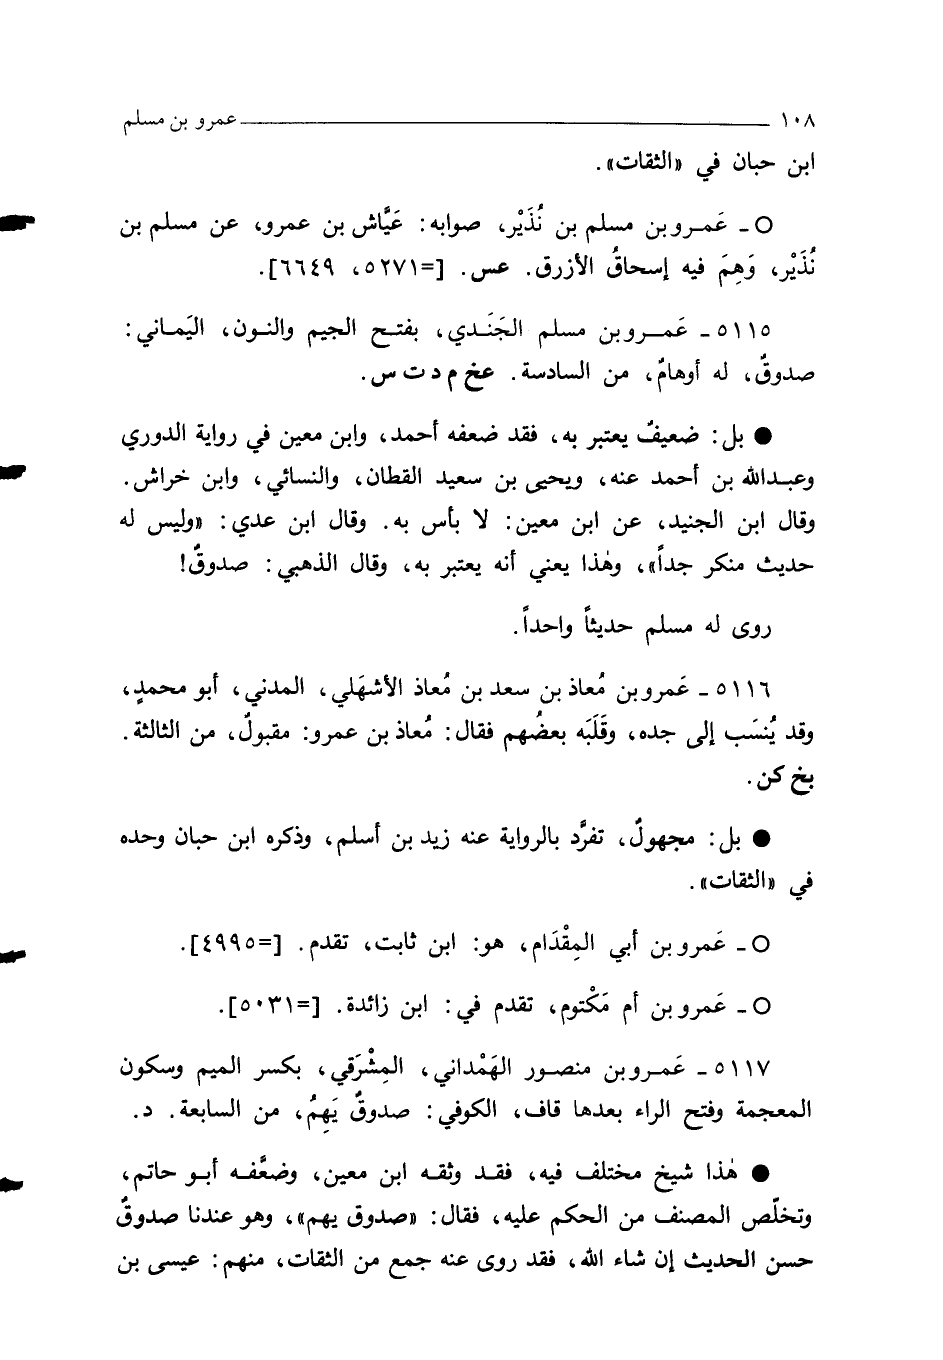 ١٠٨ عمرو بن مسلم
ابن حبان في «الثقات».
○ - عَمرو بن مسلم بن نُذَيْر، صوابه: عَيَّاش بن عمرو، عن مسلم بن
نُذَيْر، وَهِمَ فيه إسحاقُ الأزرق. عس. [=٥٢٧١، ٦٦٤٩].
٥١١٥ - عَمرو بن مسلم الجَنَدي، بفتح الجيم والنون، اليَماني:
صدوقٌ، له أوهامٌ، من السادسة. عخ م د ت س.
● بل: ضعيفٌ يعتبر به، فقد ضعفه أحمد، وابن معين في رواية الدوري
وعبدالله بن أحمد عنه، ويحيى بن سعيد القطان، والنسائي، وابن خراش.
وقال ابن الجنيد، عن ابن معين: لا بأس به. وقال ابن عدي: «وليس له
حديث منكر جداً»، وهٰذا يعني أنه يعتبر به، وقال الذهبي: صدوقٌ!
روى له مسلم حديثاً واحداً.
٥١١٦ - عَمرو بن مُعاذ بن سعد بن مُعاذ الأشهَلي، المدني، أبو محمدٍ،
وقد يُنسَب إلى جده، وقَلَبَه بعضُهم فقال: مُعاذ بن عمرو: مقبولٌ، من الثالثة.
بخ كن.
● بل: مجهولٌ، تفرَّد بالرواية عنه زيد بن أسلم، وذكره ابن حبان وحده
في «الثقات».
○ - عَمرو بن أبي المِقْدَام، هو: ابن ثابت، تقدم. [=٤٩٩٥].
○ - عَمرو بن أم مَكْتوم، تقدم في: ابن زائدة. [=٥٠٣١].
٥١١٧ - عَمرو بن منصور الهَمْداني، المِشْرَقي، بكسر الميم وسكون
المعجمة وفتح الراء بعدها قاف، الكوفي: صدوقٌ يَهِمُ، من السابعة. د.
● هٰذا شيخ مختلف فيه، فقد وثقه ابن معين، وضعَّفه أبو حاتم،
وتخلّص المصنف من الحكم عليه، فقال: «صدوق يهم»، وهو عندنا صدوقٌ
حسن الحديث إن شاء الله، فقد روى عنه جمع من الثقات، منهم: عيسى بن